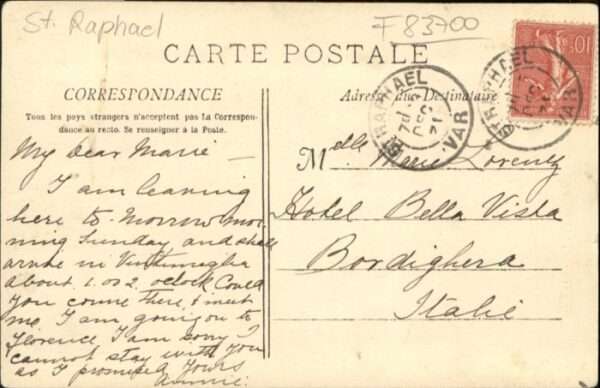 St. Raphael
F 83700
CARTE POSTALE
CORRESPONDANCE
Tous les pays étrangers n'acceptent pas La Correspon-
dance au recto. Se renseigner à la Poste.
My dear Marie —
I am leaving
here to-Morrow mor-
ning Sunday and shall
arrive in Vintimeglia
about 1. or 2. oclock Could
you come there & meet
me. I am going on to
Florence I am sorry I
cannot stay with you
as I promised Yours
Annie.
Adresse du Destinataire
Melle Marie Lorentz
Hotel Bella Vista
Bordighera
Italie
ST RAPHAEL
VAR
RAPHAEL
VAR
10